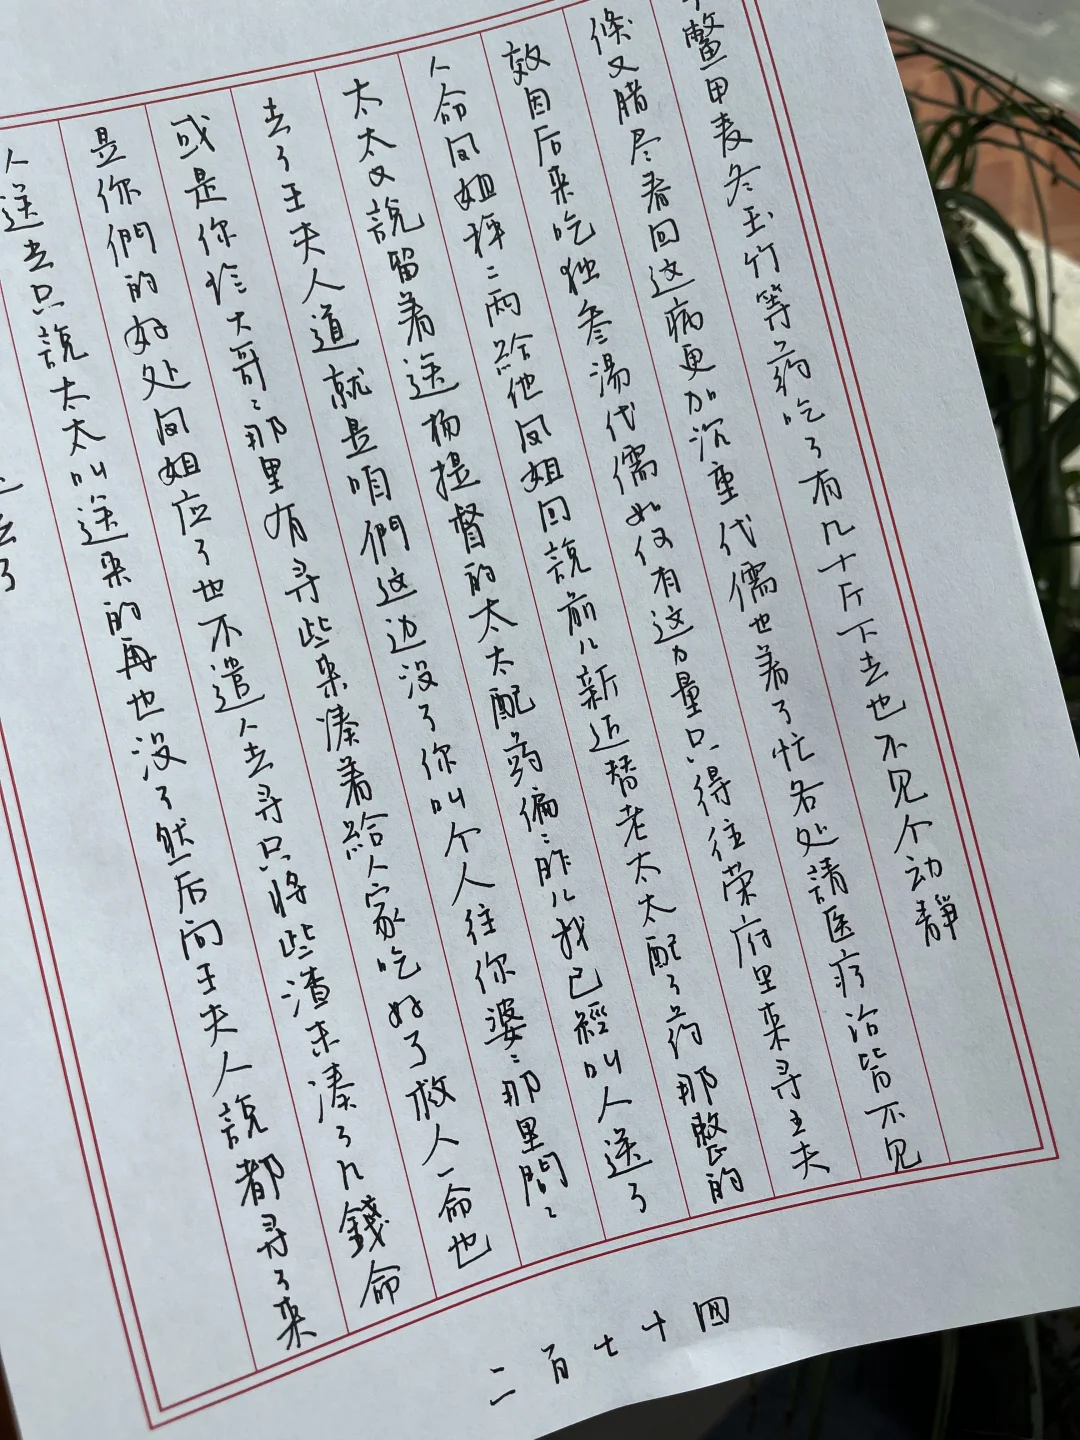 鳖甲麦冬玉竹等药吃了有几十斤下去也不见个动靜
條又腊尽春回这病更加沉重代儒也着了忙各处請医疗治皆不见
效因后来吃独参湯代儒如何有这力量只得往荣府里来寻王夫
人命凤姐秤二兩給他凤姐回說前儿新近替老太太配了药那整的
太太又說留着送杨提督的太太配药偏〻昨儿我已經叫人送了
去了王夫人道就是咱們这边没了你叫个人往你婆〻那里問〻
或是你珍大哥〻那里有寻些来湊着給人家吃好了救人一命也
是你們的好处凤姐应了也不遣人去寻只将些渣末湊了几錢命
人送去只說太太叫送来的再也没了然后向王夫人說都寻了来
去了
二百七十四